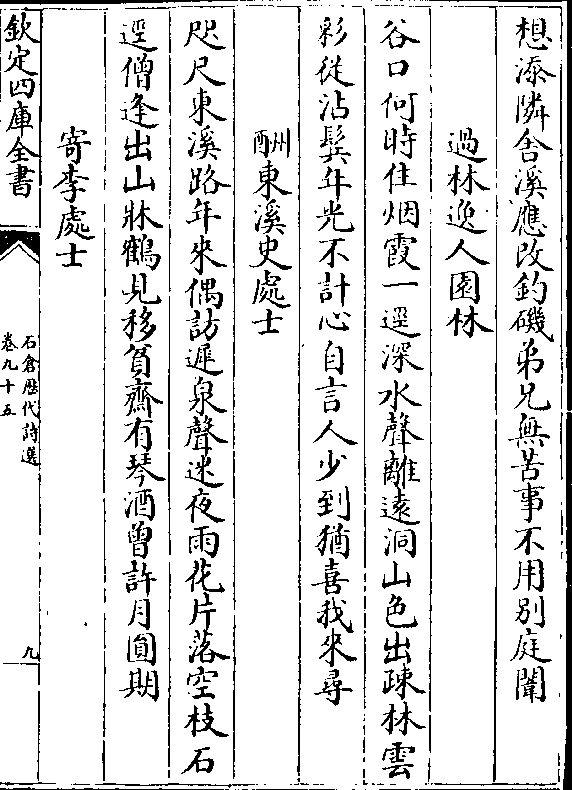 想添隣舍溪應改釣磯弟兄無苦事不用别庭闈
過林逸人園林
谷口何時住烟霞一逕深水聲離遠洞山色出疎林雲
彩從沾鬂年光不計心自言人少到猶喜我來尋
酧東溪史處士
咫尺東溪路年來偶訪遲泉聲迷夜雨花片落空枝石
逕僧逢出山牀鶴見移貧齋有琴酒曾許月圓期
寄李處士
欽定四庫全書
石倉歴代詩選
卷九十五
九